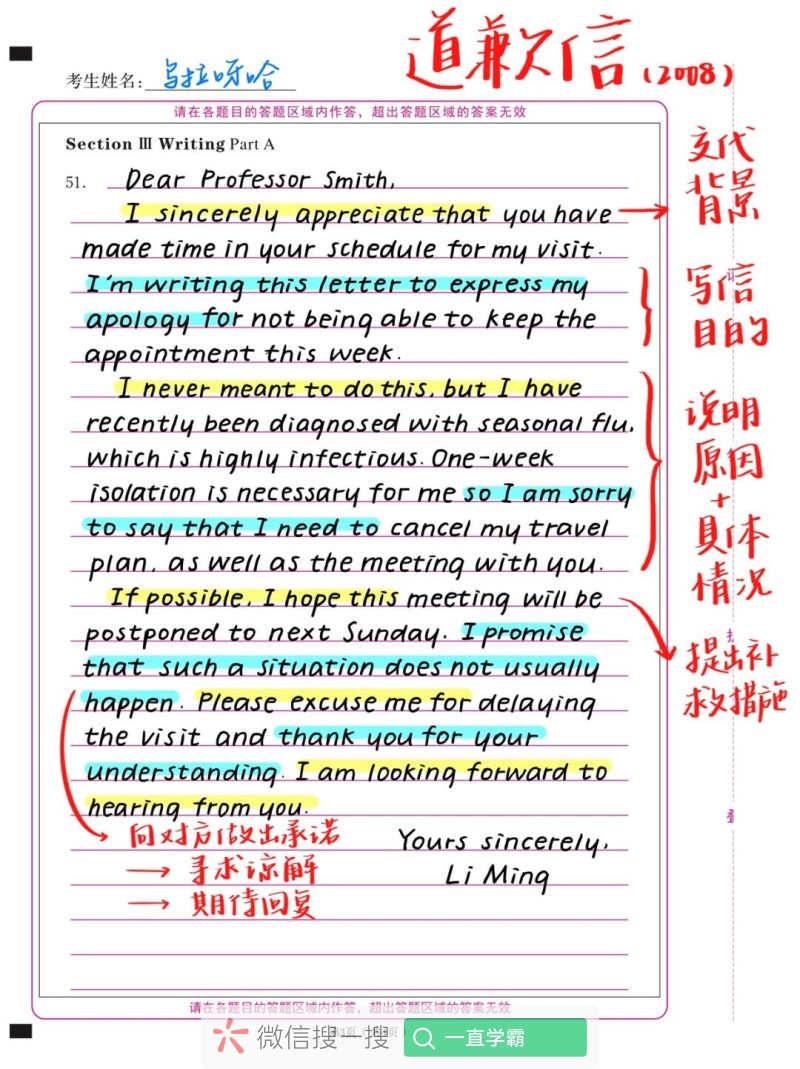 道歉信(2008)
考生姓名：乌拉呀哈
请在各题目的答题区域内作答，超出答题区域的答案无效
Section Ⅲ Writing Part A
51. Dear Professor Smith,
I sincerely appreciate that you have
made time in your schedule for my visit.
I'm writing this letter to express my
apology for not being able to keep the
appointment this week.
I never meant to do this, but I have
recently been diagnosed with seasonal flu,
which is highly infectious. One-week
isolation is necessary for me so I am sorry
to say that I need to cancel my travel
plan, as well as the meeting with you.
If possible, I hope this meeting will be
postponed to next Sunday. I promise
that such a situation does not usually
happen. Please excuse me for delaying
the visit and thank you for your
understanding. I am looking forward to
hearing from you.
Yours sincerely,
Li Ming
交代
背景
写信
目的
说明
原因
+
具体
情况
提出补
救措施
向对方做出承诺
→ 寻求谅解
→ 期待回复
请在各题目的答题区域内作答，超出答题区域的答案无效
微信搜一搜
一直学霸